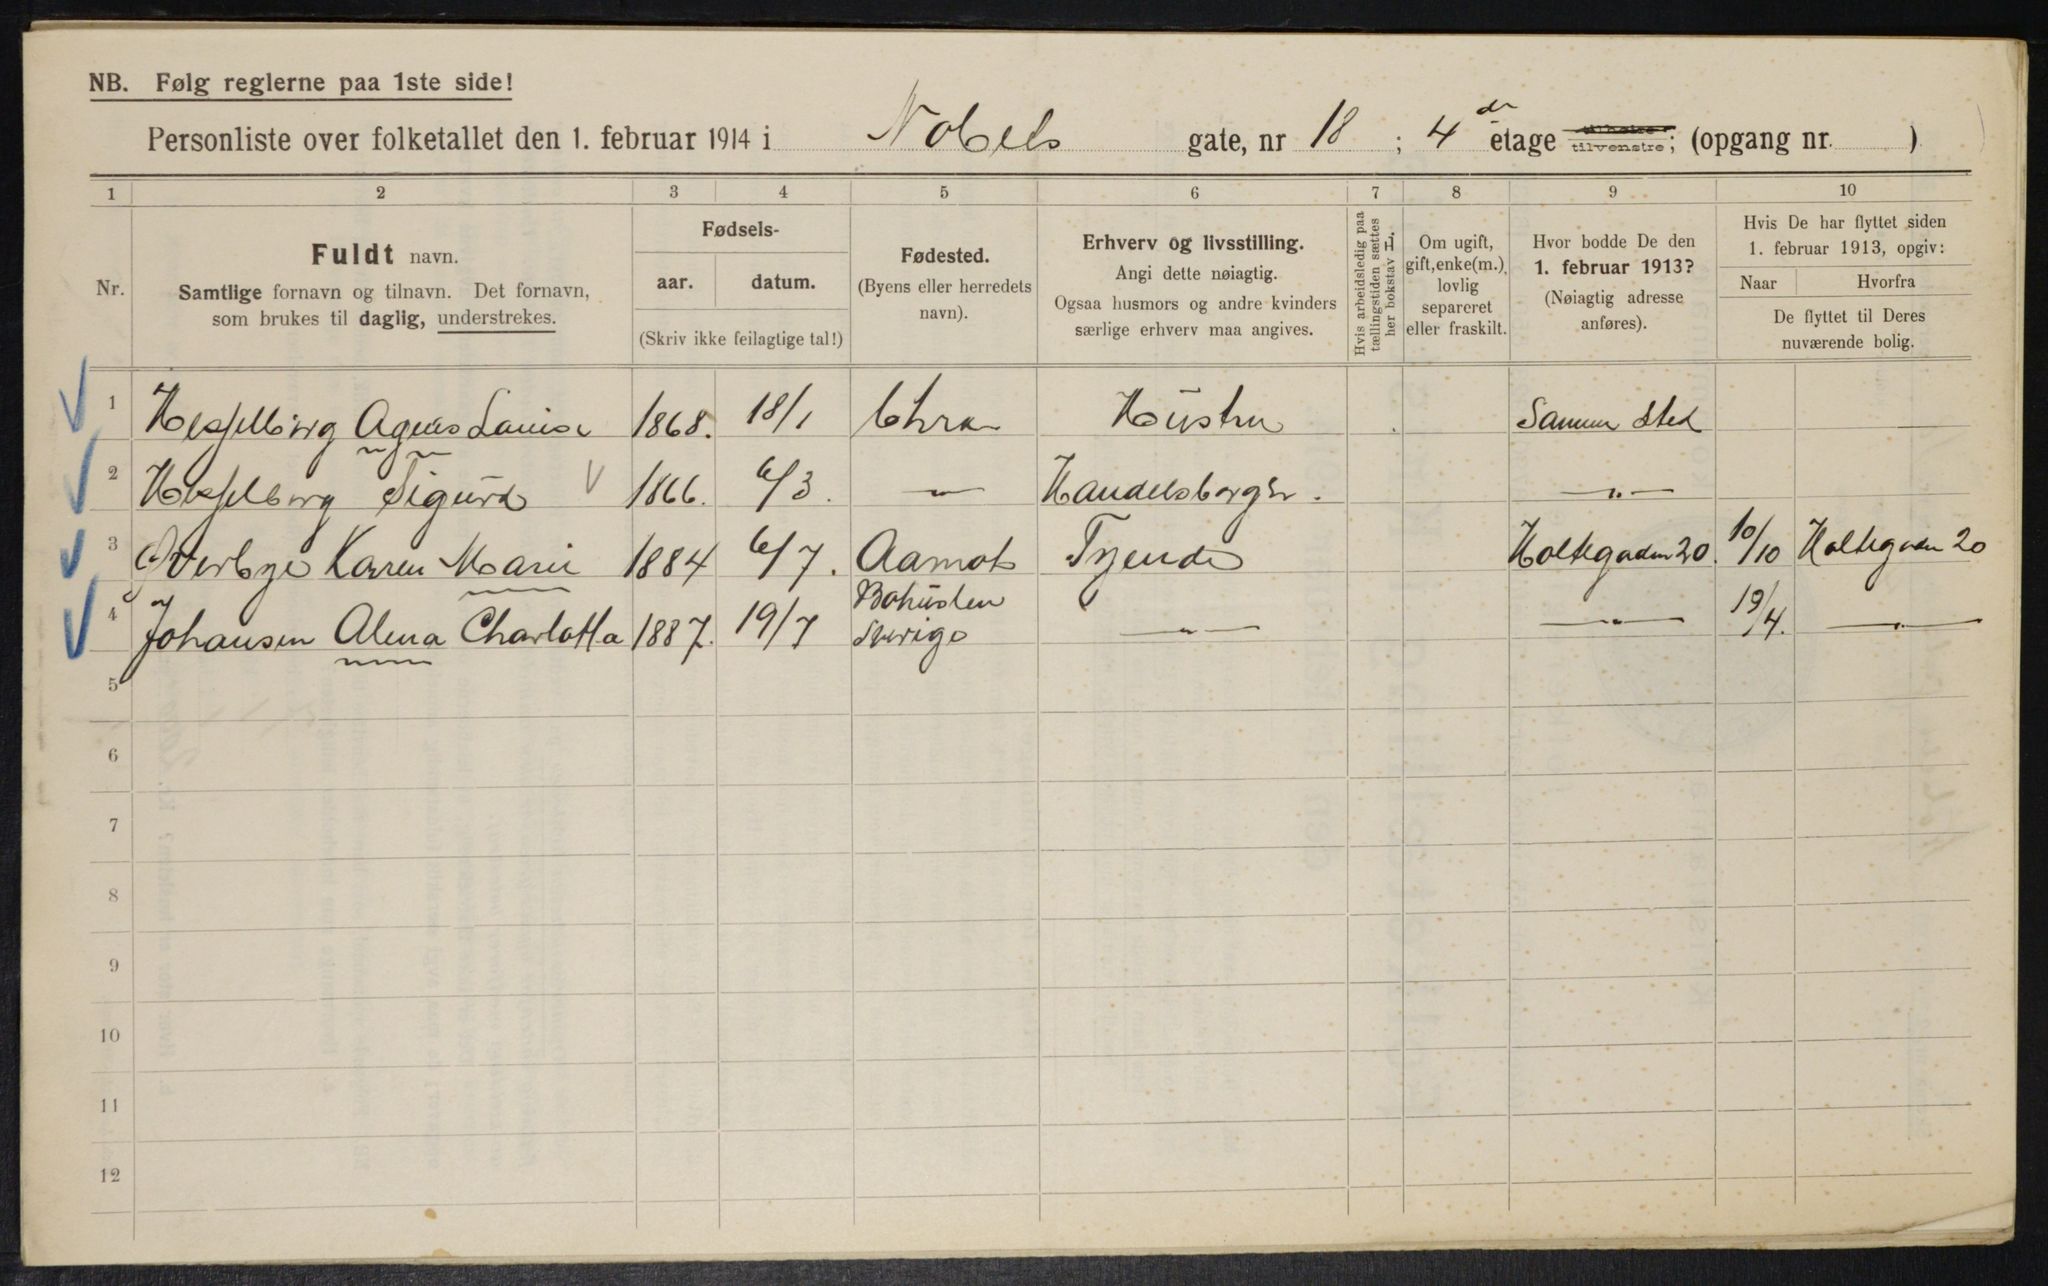 NB. Følg reglerne paa 1ste side!
Personliste over folketallet den 1. februar 1914 i Nobels gate, nr 18 ; 4 de etage tilhøire tilvenstre; (opgang nr. )
1 2 3 4 5 6 7 8 9 10
Nr.
Fuldt navn.
Samtlige fornavn og tilnavn. Det fornavn,
som brukes til daglig, understrekes.
Fødsels-
aar. datum.
(Skriv ikke feilagtige tal!)
Fødested.
(Byens eller herredets
navn).
Erhverv og livsstilling.
Angi dette nøiagtig.
Ogsaa husmors og andre kvinders
særlige erhverv maa angives.
Hvis arbeidsledig paa
tællingstiden sættes
her bokstav L.
Om ugift,
gift, enke(m.),
lovlig
separeret
eller fraskilt.
Hvor bodde De den
1. februar 1913?
(Nøiagtig adresse
anføres).
Hvis De har flyttet siden
1. februar 1913, opgiv:
Naar Hvorfra
De flyttet til Deres
nuværende bolig.
1 Hesselberg Agnes Louise 1868. 18/1 Chra Hustru Samme Sted
2 Hesselberg Sigurd 1866. 6/3. — " — Handelsborger. — " —
3 Overbye Karen Marie 1884 6/7. Aamot Tjende Holtegaden 20. 10/10 Holtegaden 20
4 Johansen Alma Charlotta 1887. 19/7 Bohuslen Sverige — " — — " — 19/4. — " —
5
6
7
8
9
10
11
12